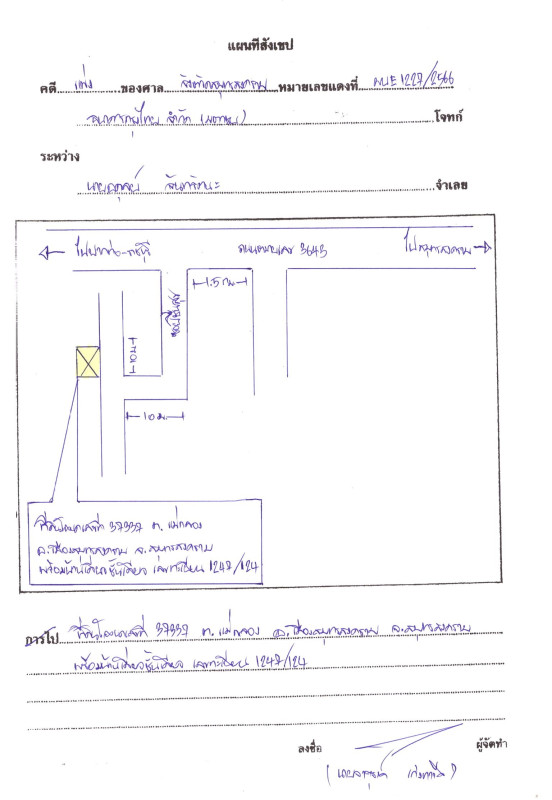 แผนที่สังเขป
คดี แพ่ง ของศาล จังหวัดสมุทรสงคราม หมายเลขแดงที่ ผบE 1227/2566
ธนาคารกรุงไทย จำกัด (มหาชน) โจทก์
ระหว่าง
นายอดุลย์ จำเลย
ไปปากท่อ-ราชบุรี ถนนหมายเลข 3643 ไปสมุทรสงคราม
1.5 กม.
10 ม.
10 ม.
ที่ดินโฉนดเลขที่ 37337 ต. แม่กลอง
อ.เมืองสมุทรสงคราม จ.สมุทรสงคราม
พร้อมบ้านเดี่ยวชั้นเดียว เลขทะเบียน 1247/124
การไป ที่ดินโฉนดเลขที่ 37337 ต. แม่กลอง อ.เมืองสมุทรสงคราม จ.สมุทรสงคราม
พร้อมบ้านเดี่ยวชั้นเดียว เลขทะเบียน 1247/124
ลงชื่อ ผู้จัดทำ